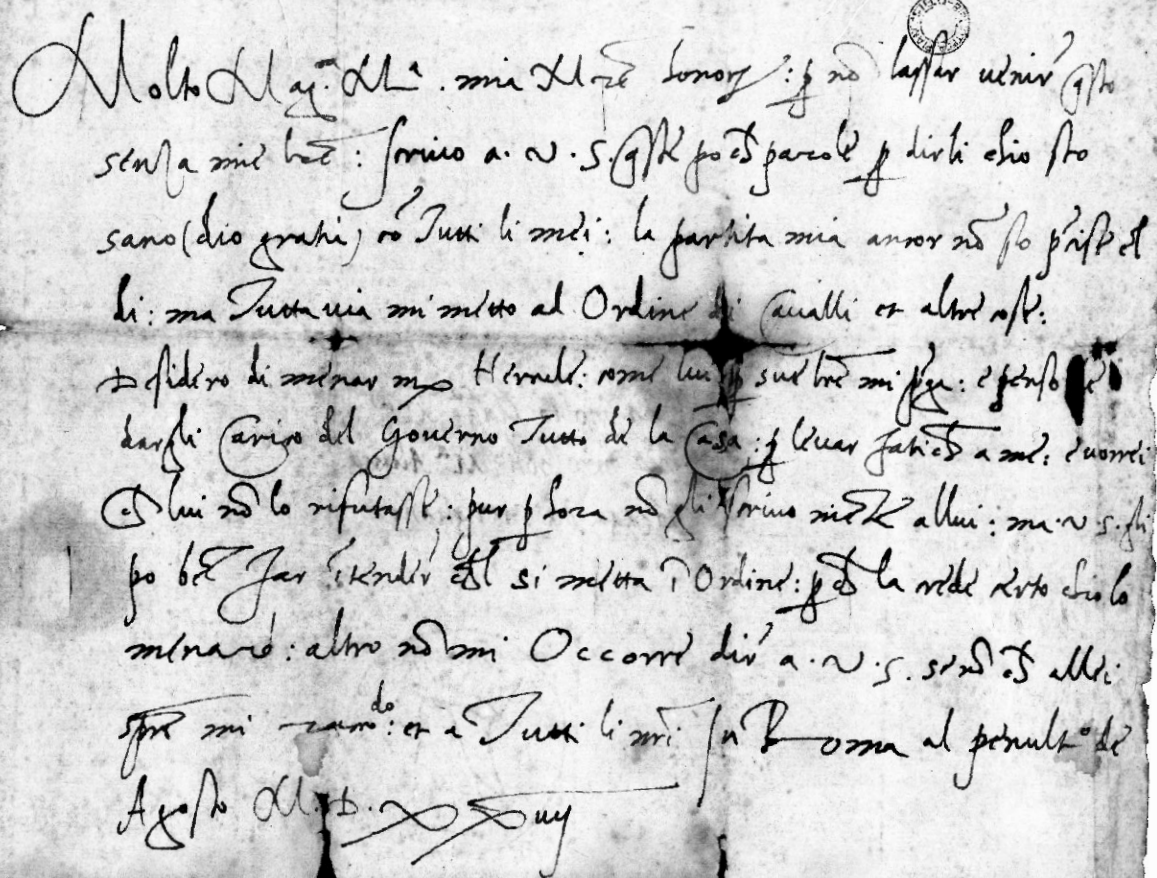 Molto Mag.ca M.a mia M.re honor: p nō lassar venir qsto
senza mie lrē: scrivo a. v. s. qste poche parole p dirli chio sto
sano (dio gratia) cō Tutti li mei: la partita mia ancor nō so pcise el
di: ma Tutta via mi metto ad Ordine di Cavalli et altre cose:
Desidero di menar mr Hercule: come lui p sue lrē mi pga: e penso de
dargli Carico del Governo Tutto de la Casa: p levar fatica a me: e vorrei
che lui nō lo rifutasse: pur p hora nō gli scrivo allui: ma. v. s. gli
po bē far ītender chel si metta ī Ordine: p che la vede certo chio lo
menarò: altro nō mi Occorre dir a. v. s. senō che allei
spre mi racco.do: et a Tutti li nri In Roma al penult.o de
Agosto M. D. XXVIIJ